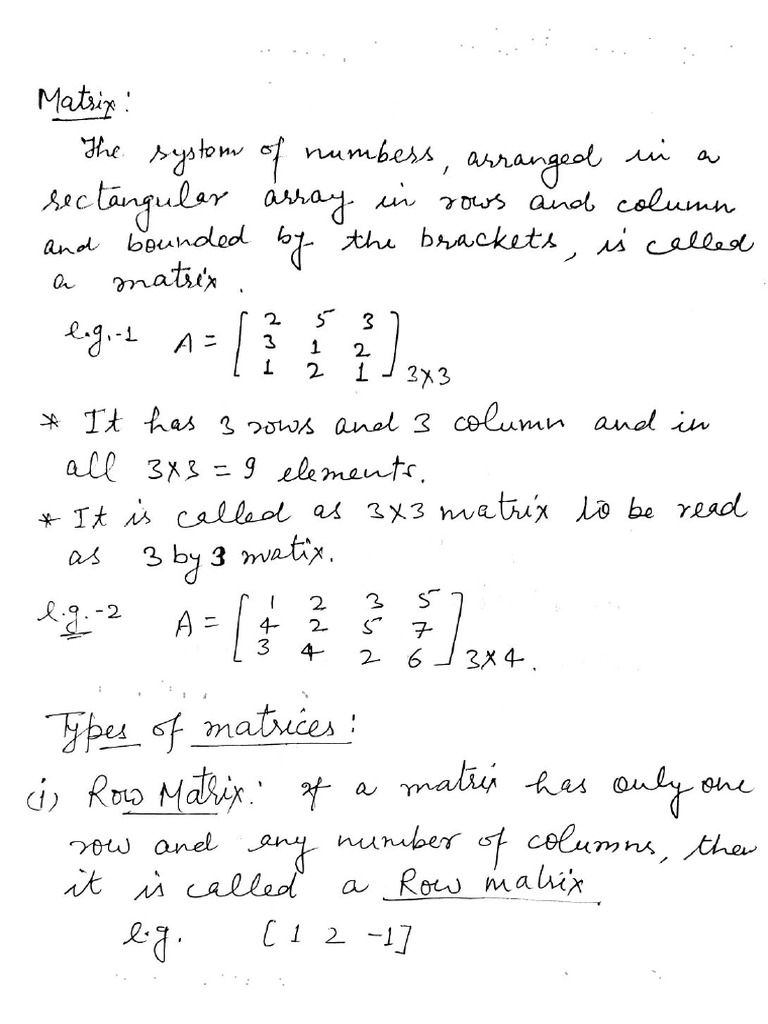 Matrix:
The system of numbers, arranged in a
rectangular array in rows and column
and bounded by the brackets, is called
a matrix.
e.g.-1 A = [ 2 5 3
3 1 2
1 2 1 ] 3×3
* It has 3 rows and 3 column and in
all 3×3 = 9 elements.
* It is called as 3×3 matrix to be read
as 3 by 3 matix.
e.g.-2 A = [ 1 2 3 5
4 2 5 7
3 4 2 6 ] 3×4.
Types of matrices:
(i) Row Matrix: If a matrix has only one
row and any number of columns, then
it is called a Row matrix
e.g. [1 2 -1]